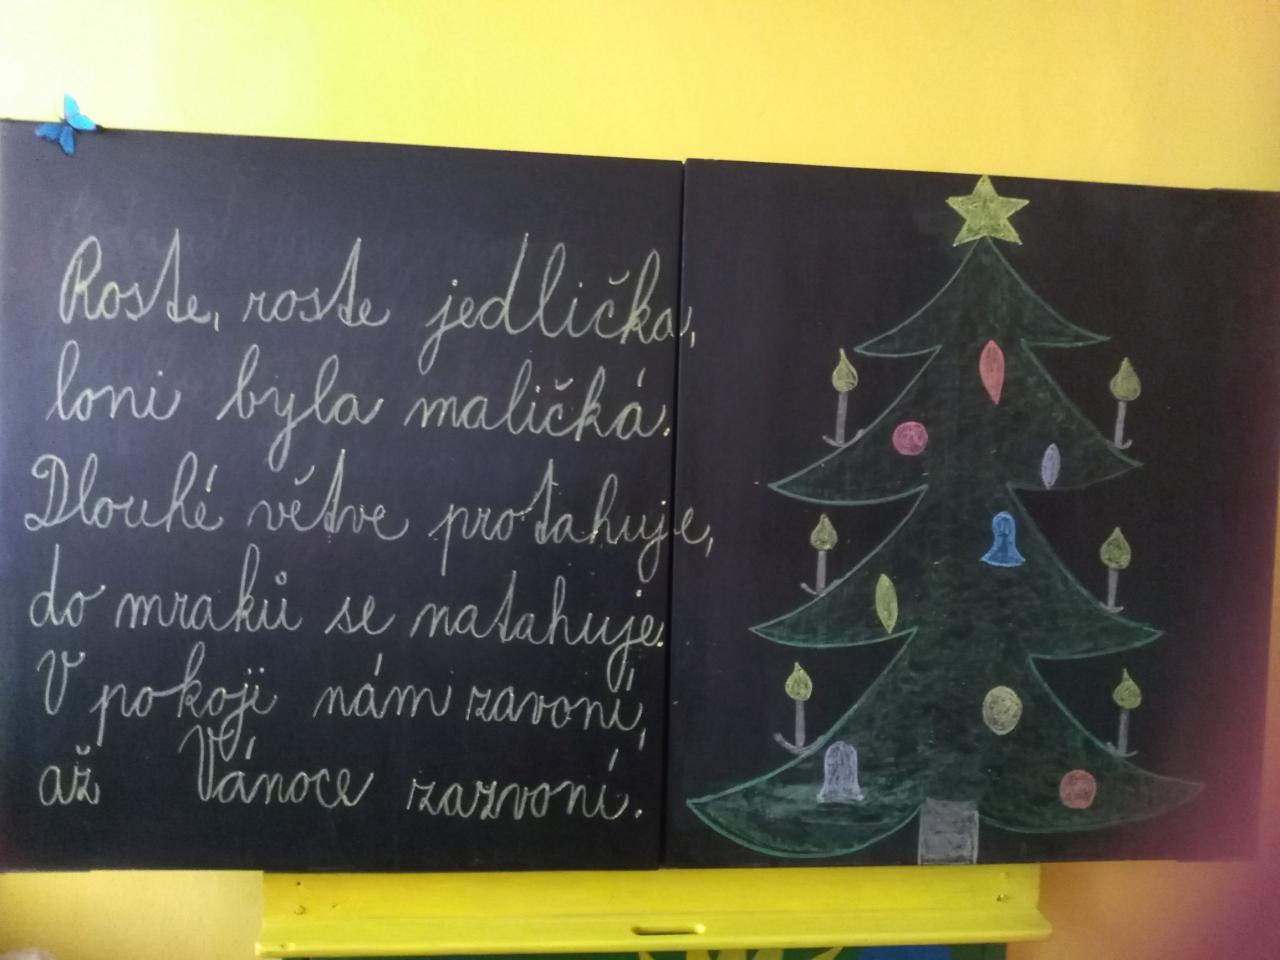 Roste, roste jedlička,
loni byla maličká.
Dlouhé větve protahuje,
do mraků se natahuje.
V pokoji nám zavoní,
až Vánoce zazvoní.